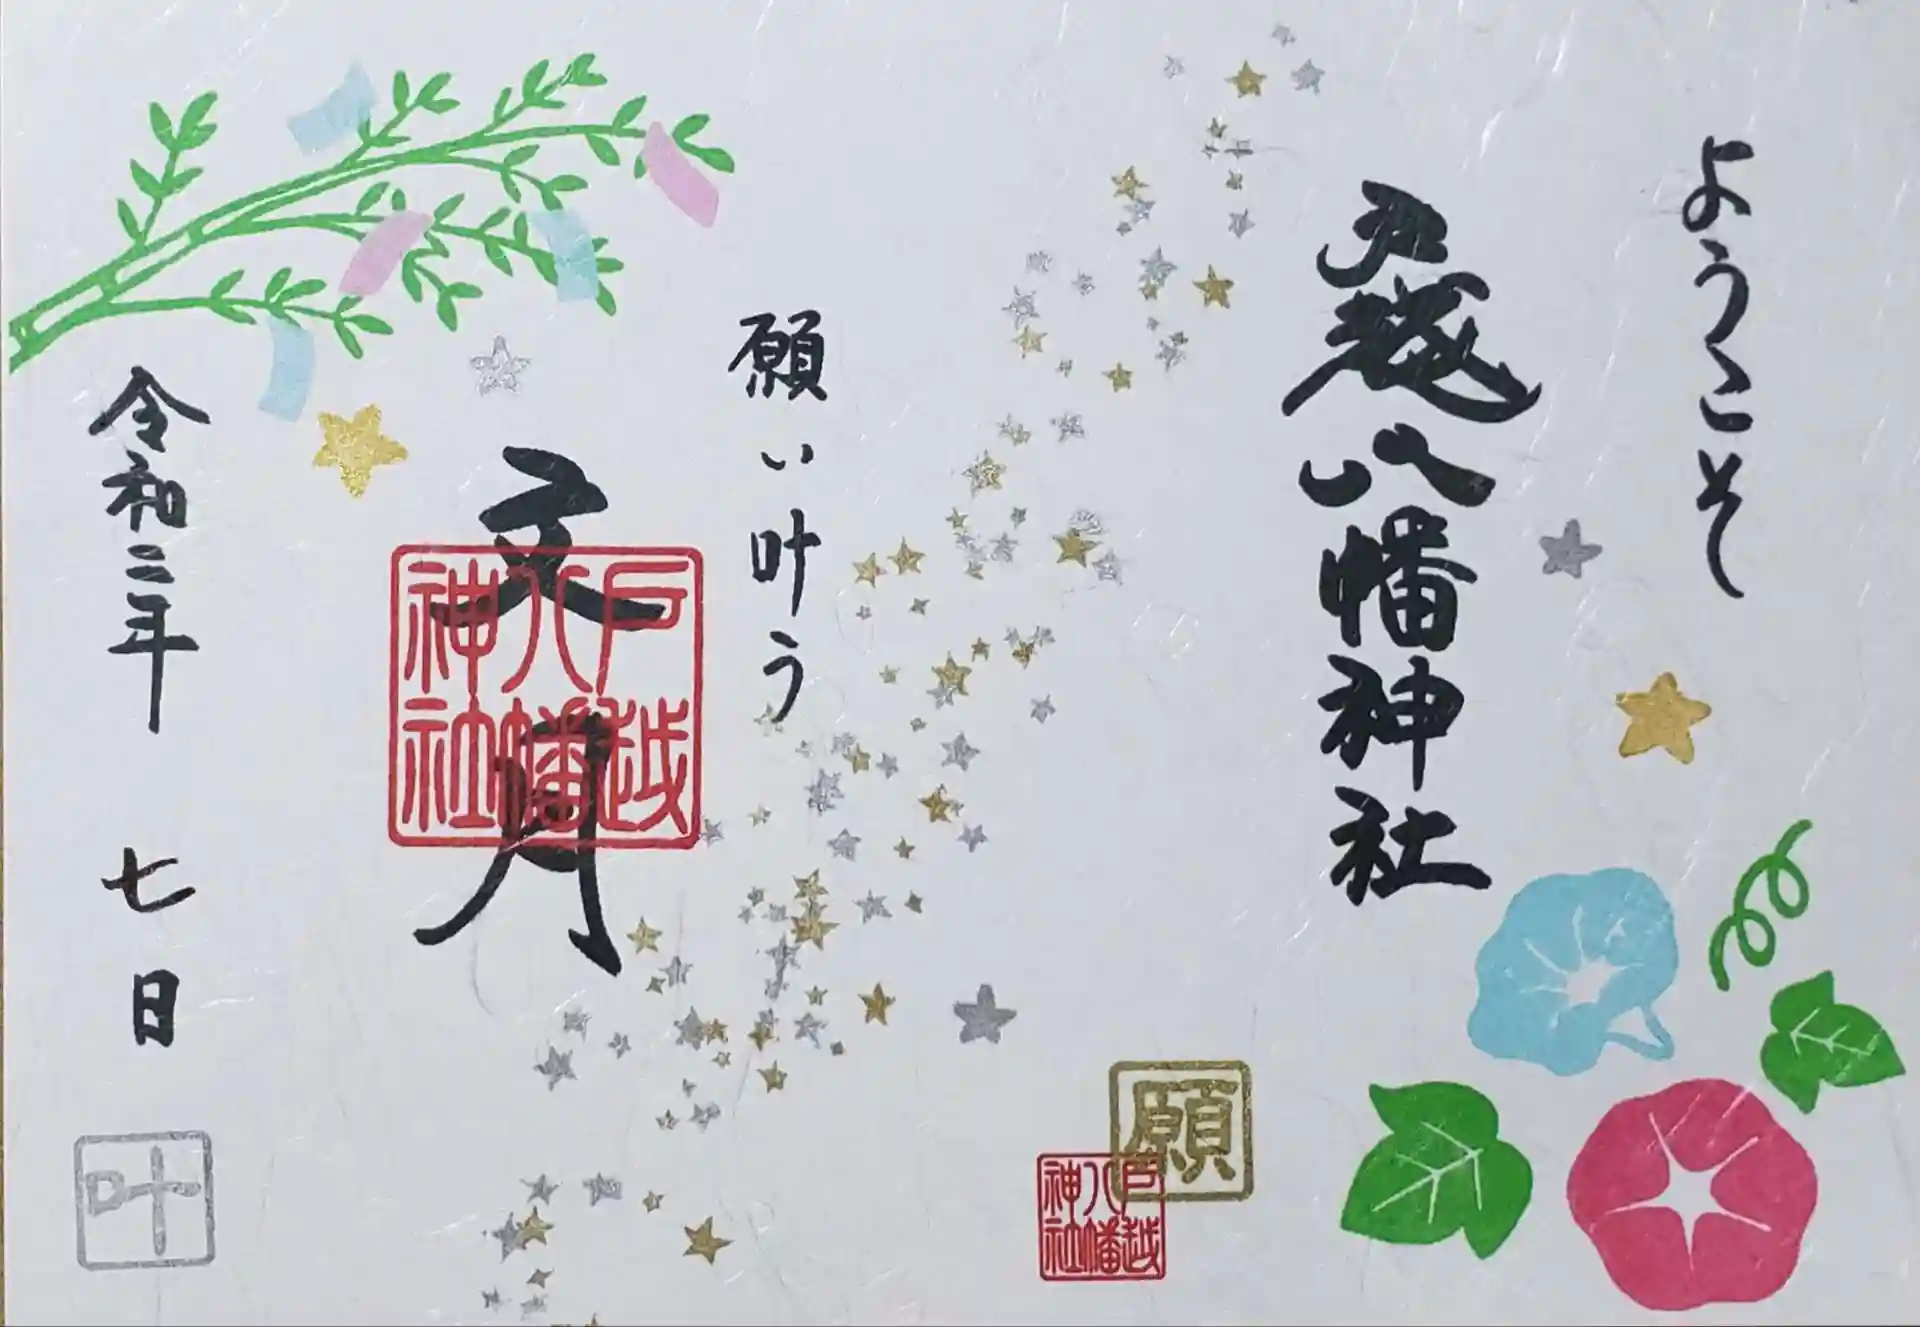 ようこそ
戸越八幡神社
願い叶う
文月
戸越八幡神社
令和二年 七日
願
戸越八幡神社
叶